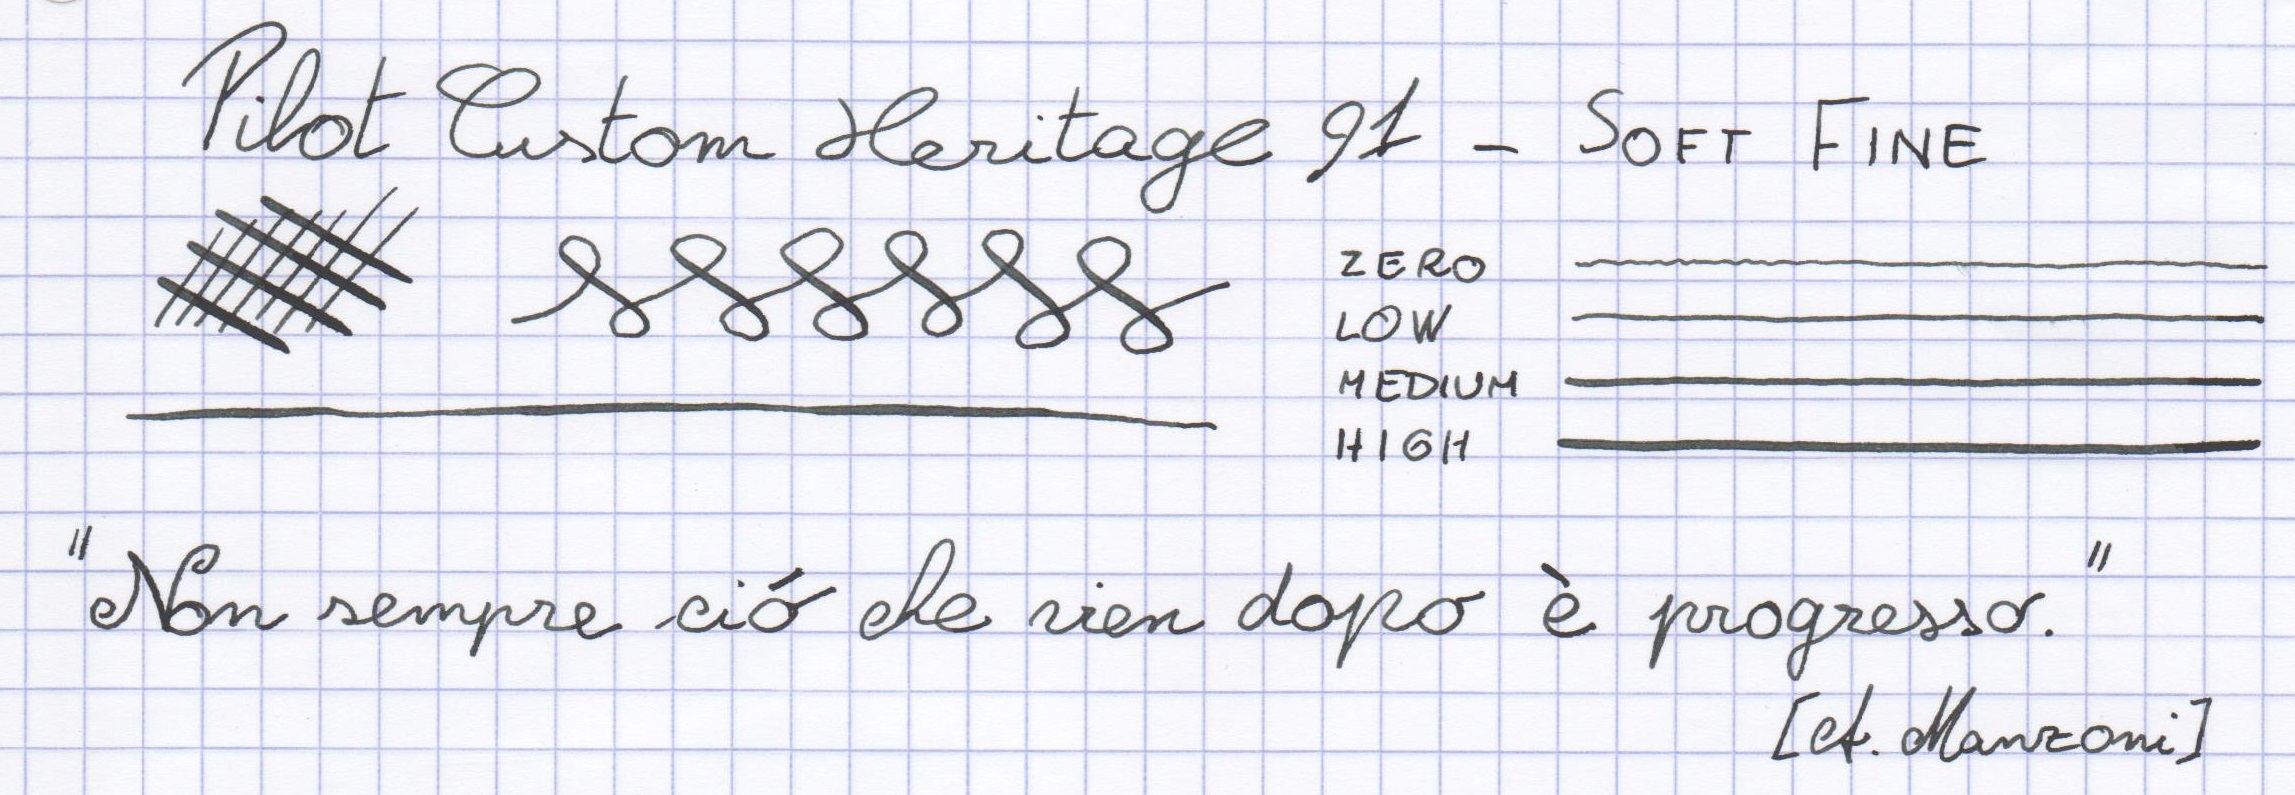 Pilot Custom Heritage 91 - SOFT FINE
ZERO
LOW
MEDIUM
HIGH
"Non sempre ció che vien dopo è progresso."
[A. Manzoni]